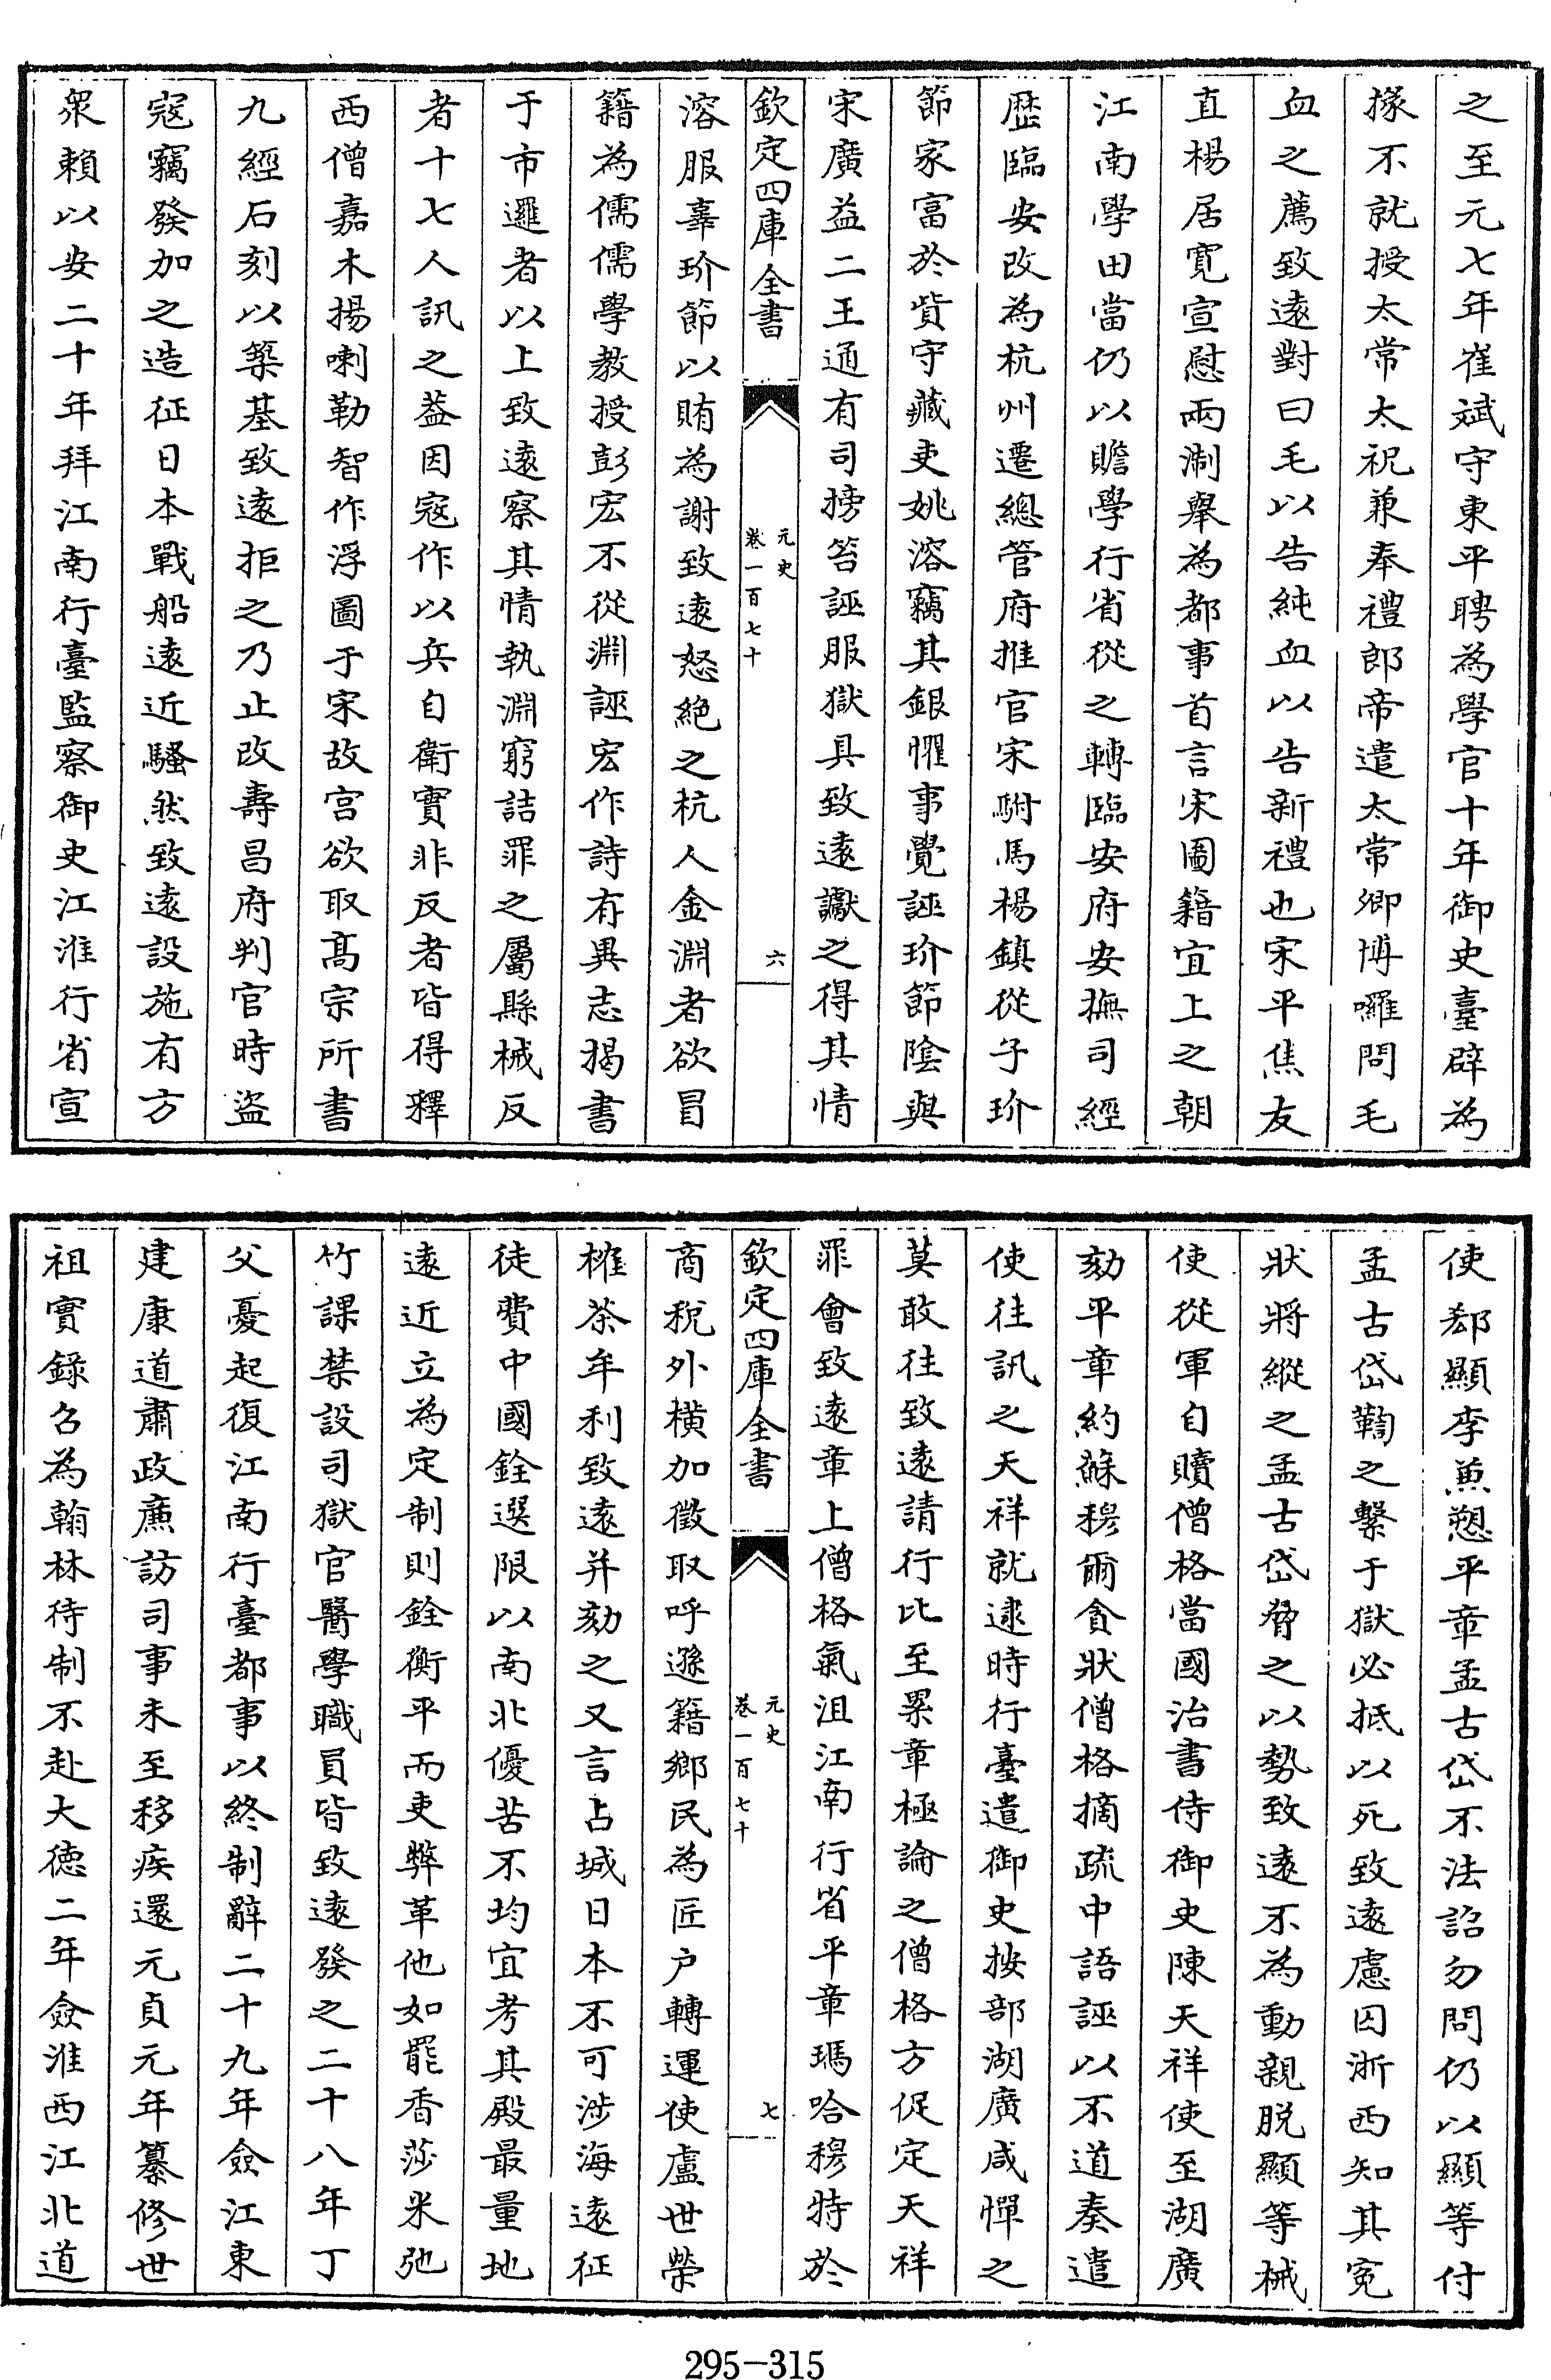 之至元七年崔斌守東平聘為學官十年御史臺辟為
掾不就授太常太祝兼奉禮郎帝遣太常卿博囉問毛
血之薦致遠對曰毛以告純血以告新禮也宋平焦友
直楊居寛宣慰兩淛舉為都事首言宋圖籍宜上之朝
江南學田當仍以贍學行省從之轉臨安府安撫司經
歴臨安改為杭州遷總管府推官宋駙馬楊鎮從子玠
節家富於貲守藏吏姚溶竊其銀懼事覺誣玠節陰與
宋廣益二王通有司搒笞誣服獄具致遠讞之得其情
欽定四庫全書
元史
卷一百七十
六
溶服辜玠節以賄為謝致遠怒絶之杭人金淵者欲冒
籍為儒儒學教授彭宏不從淵誣宏作詩有異志揭書
于市邏者以上致遠察其情執淵窮詰罪之屬縣械反
者十七人訊之葢因寇作以兵自衛實非反者皆得釋
西僧嘉木揚喇勒智作浮圖于宋故宫欲取髙宗所書
九經石刻以築基致遠拒之乃止改壽昌府判官時盜
寇竊發加之造征日本戰船逺近騷然致遠設施有方
衆賴以安二十年拜江南行臺監察御史江淮行省宣
使郄顯李兼愬平章孟古岱不法詔勿問仍以顯等付
孟古岱鞫之繫于獄必抵以死致遠慮囚浙西知其寃
狀將縱之孟古岱脅之以勢致遠不為動親脱顯等械
使從軍自贖僧格當國治書侍御史陳天祥使至湖廣
劾平章約蘇穆爾貪狀僧格摘疏中語誣以不道奏遣
使往訊之天祥就逮時行臺遣御史按部湖廣咸憚之
莫敢往致遠請行比至累章極論之僧格方促定天祥
罪會致遠章上僧格氣沮江南行省平章瑪哈穆特於
欽定四庫全書
元史
卷一百七十
七
商稅外横加徵取呼遜籍鄉民為匠户轉運使盧世榮
榷茶牟利致遠并劾之又言占城日本不可涉海遠征
徒費中國銓選限以南北優苦不均宜考其殿最量地
遠近立為定制則銓衡平而吏弊革他如罷香莎米弛
竹課禁設司獄官醫學職員皆致遠發之二十八年丁
父憂起復江南行臺都事以終制辭二十九年僉江東
建康道肅政廉訪司事未至移疾還元貞元年纂修世
祖實錄召為翰林待制不赴大徳二年僉淮西江北道
295-315